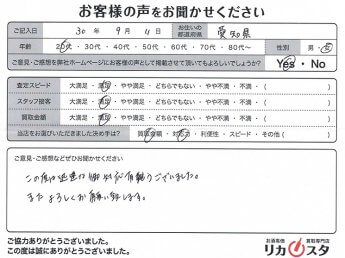 お客様の声をお聞かせください
ご記入日 30年 9月 11日 お住いの都道府県 愛知県
年齢 20代・30代・40代・50代・60代・70代・80代〜 性別 男・女
ご意見・ご感想を弊社ホームページにお客様の声として掲載させて頂いてもよろしいでしょうか? Yes・No
査定スピード 大満足・満足・やや満足・どちらでもない・やや不満・不満( )
スタッフ接客 大満足・満足・やや満足・どちらでもない・やや不満・不満( )
買取金額 大満足・満足・やや満足・どちらでもない・やや不満・不満( )
当店をお選びいただきました決め手は? 買取金額・対応・利便性・スピード・その他( )
ご意見・ご感想などぜひお聞かせください
この度は迅速な御対応有難うございました。
またよろしくお願い致します。
ご協力ありがとうございました。
この度は誠にありがとうございました。
お酒高価買取専門店
リカスタ